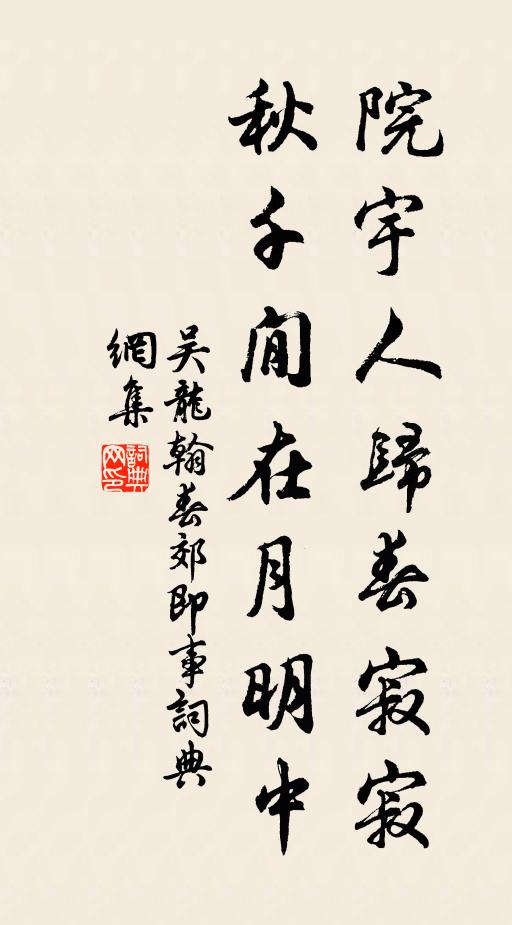 院宇人歸春寂寂
秋千閒在月明中
吴龍翰春郊即事詞典
網集
詞典网印